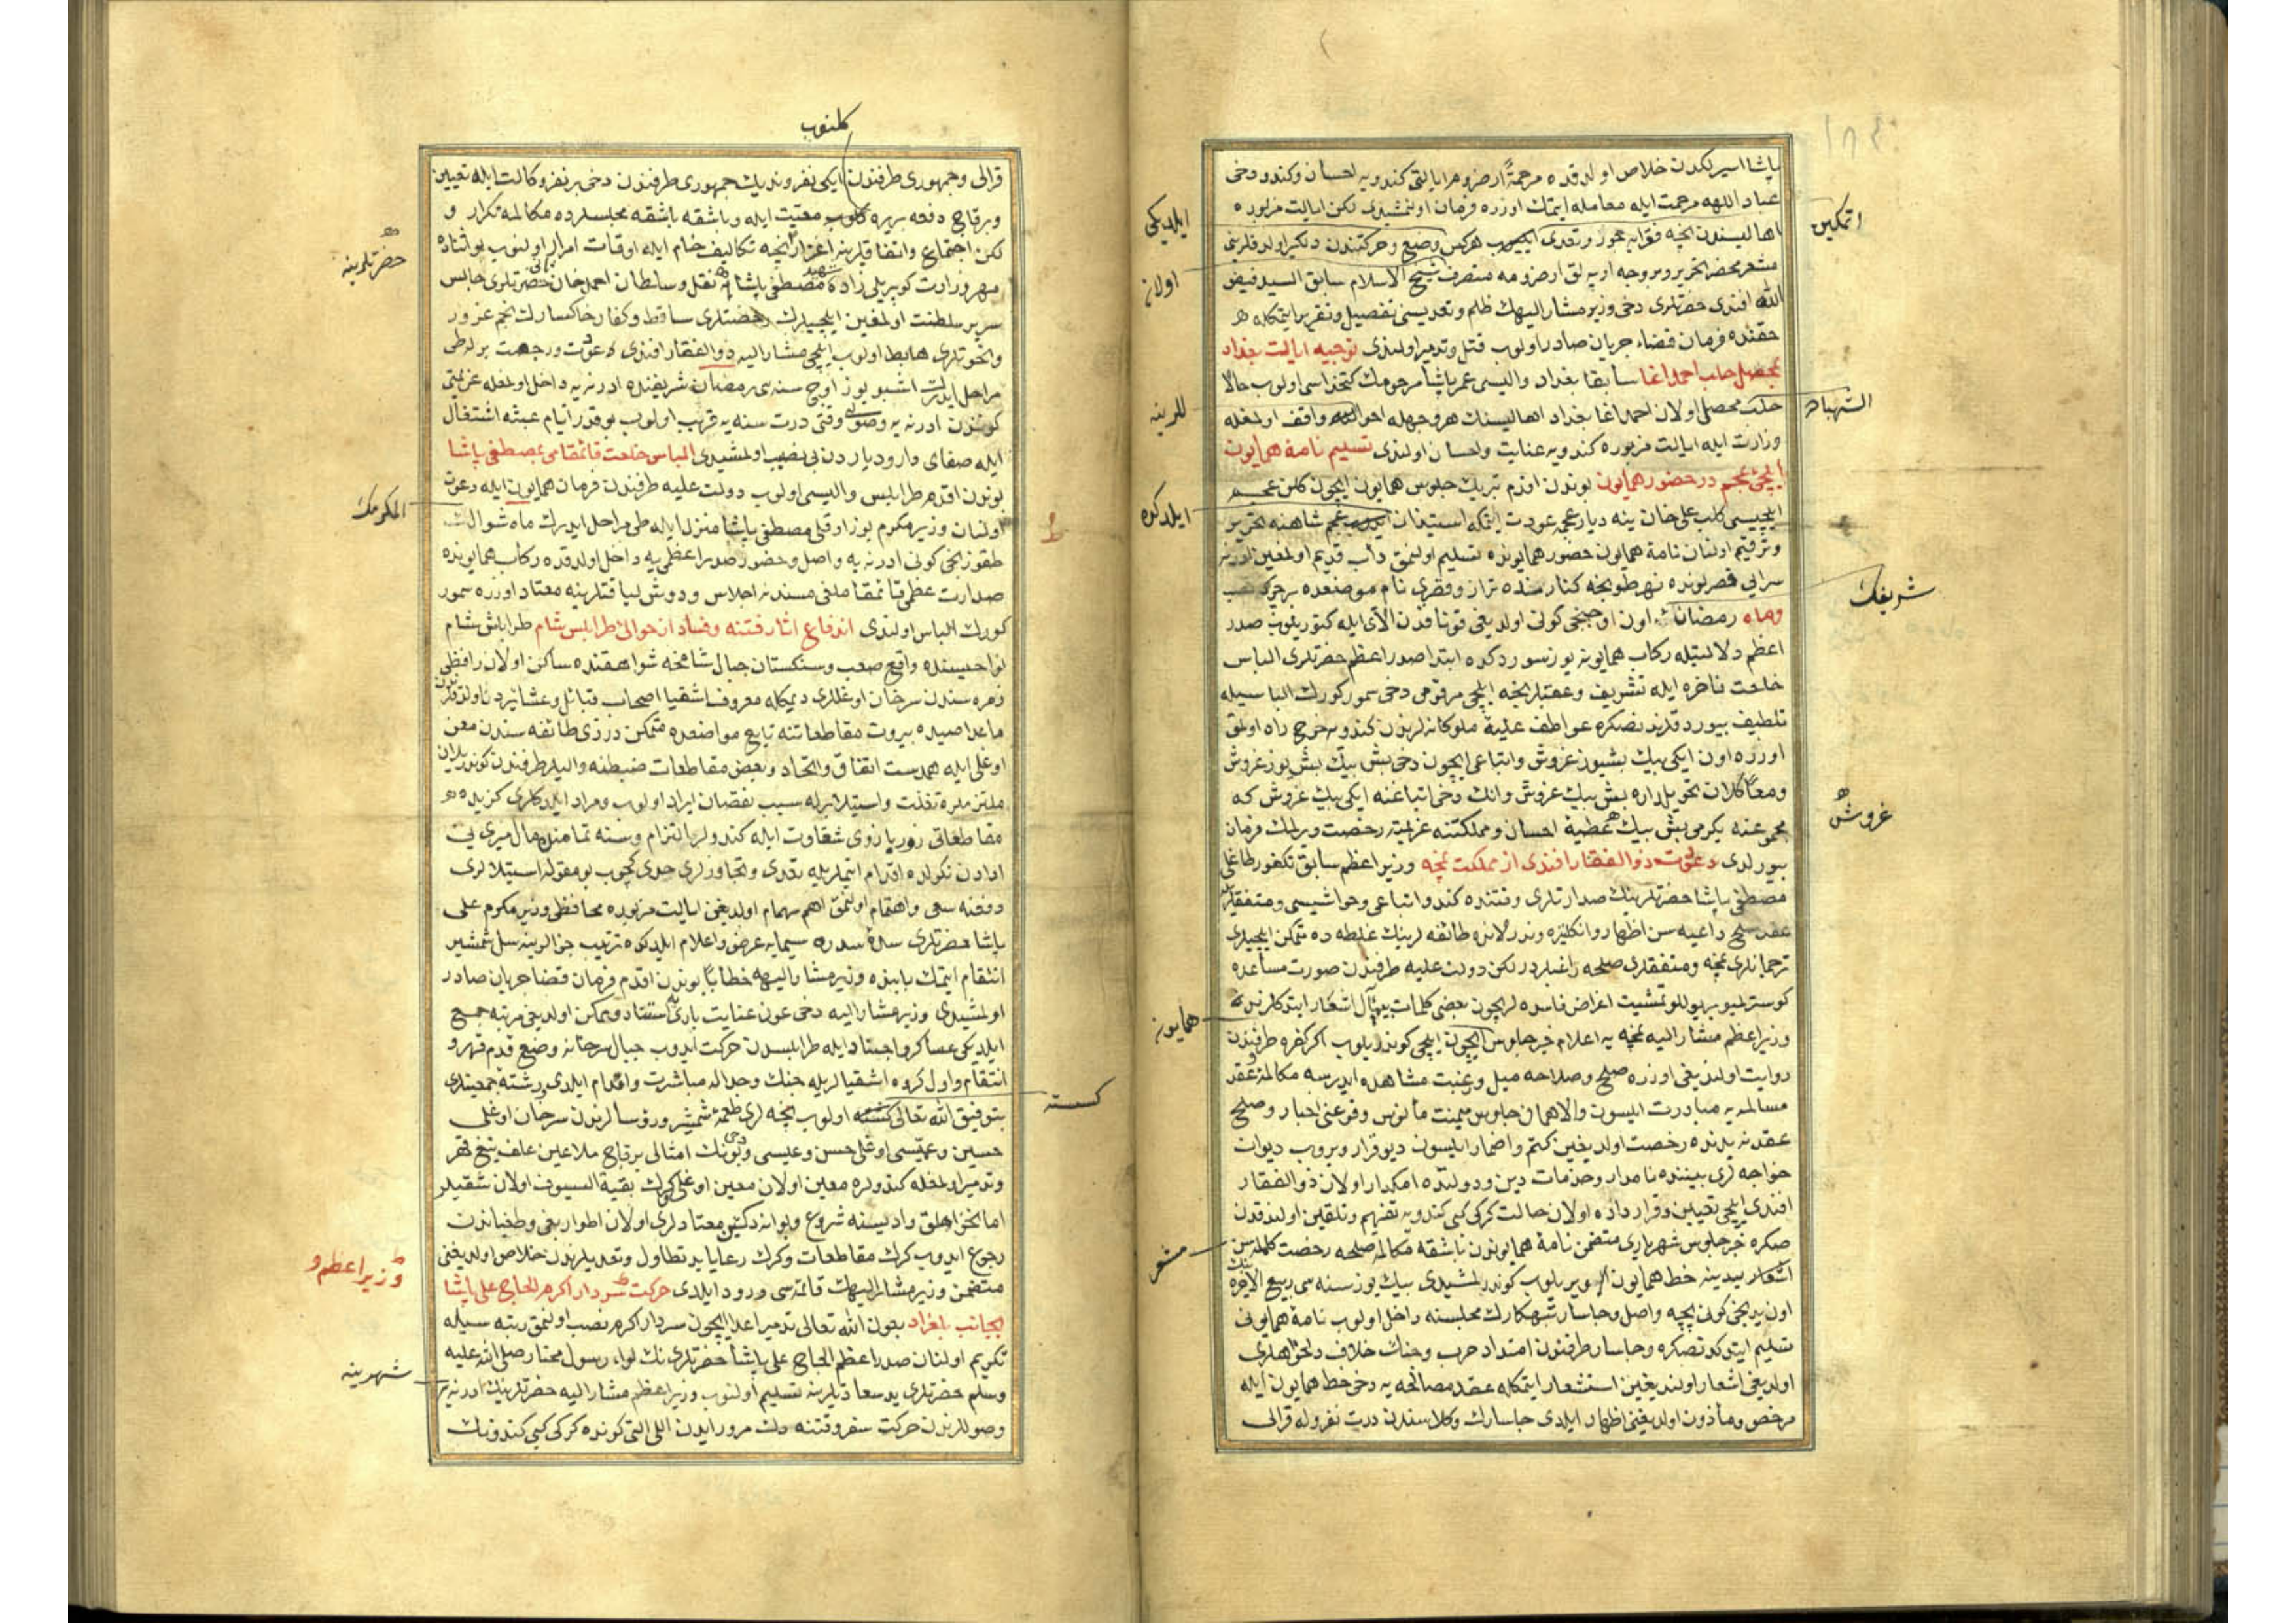 پاشا اسیرلکدن خلاص اولدقده مرحمةً ارضروم ایالتی کندویه احسان و کندو دخی
عباد اللهه مرحمت ایله معامله ایتمك اوزره فرمان اولنمشیدی لکن ایالت مزبوره
اهالیسندن نیجه فقرایه جور و تعدی ایدوب هرکس وضع و حرکتندن دلکیر اولدقلرینی
مشعر محضر تحریر و بر وجه ارپه‌لق ارضرومه متصرف شیخ الاسلام سابق السید فیض
الله افندی حضرتلری دخی وزیر مشار الیهك ظلم و تعدیسنی تفصیل و تقریر ایتمکله
حقنده فرمان قضا جریان صادر اولوب قتل و تدمیر اولندی توجیه ایالت بغداد
بمحصل حلب احمد اغا سابقا بغداد والیسی عمر پاشا مرحومك کتخداسی اولوب حالا
حلب محصلی اولان احمد اغا بغداد اهالیسنك هر وجهله احوالنه واقف اولمغله
وزارت ایله ایالت مزبوره کندویه عنایت و احسان اولندی تسلیم نامهٔ همایون
ایلچیٔ عجم در حضور همایون بوندن اقدم تبریك جلوس همایون ایچون کلن عجم
ایلچیسی کلب علی خان ینه دیار عجمه عودت ایتمکه استیذان ایدوب عجم شاهنه تحریر
و ترقیم اولنان نامهٔ همایون حضور همایونده تسلیم اولنمق دأب قدیم اولمغین ادرنه
سرایی قصرلرنده نهر طونجه کنارنده تراز و قصری نام موضعده
و ماه رمضانك اون اوچنجی کونی اولدیغی قوناقدن الای ایله کتوریلوب صدر
اعظم دلالتیله رکاب همایونه یوز سوردکده ابتدا صدر اعظم حضرتلری الباس
خلعت فاخره ایله تشریف و عقبلرنجه ایلچی مرقومی دخی سمور کورك الباسیله
تلطیف بیوردقلرندنصکره عواطف علیهٔ ملوکانه‌لرندن کندویه خرج راه اولمق
اوزره اون ایکی بیك بشیوز غروش و اتباعی ایچون دخی بش بیك بش یوز غروش
و معًا کلان تحویلداره بش بیك غروش و انك دخی اتباعنه ایکی بیك غروش که
مجموعنه یکرمی بش بیك عطیه احسان و مملکتنه عزیمته رخصت ویرلمك فرمان
بیورلدی دعوت ذو الفقار افندی از مملکت نمچه وزیر اعظم سابق تکفورطاغلی
مصطفی پاشا حضرتلرینك صدارتلری وقتنده کندو اتباعی و حواشیسی و متفقلری
عقد صلح داعیه‌سن اظهار و انکلتره و ندرلانده طائفه‌لرینك غلطه ده متمکن ایلچیلری
ترجمانلری نمچه و متفقلری صلحه راغبلردر لکن دولت علیه طرفندن صورت مساعده
کوسترلمیور دیو للو تمشیت اغراض فاسده‌لری ایچون بعضی کلمات اشعار ایتدکلرنده
وزیر اعظم مشار الیه نمچه یه اعلام خبر جلوس ایچون ایلچی کوندریلوب اکر کفره طرفندن
روایت اولندیغی اوزره صلح و صلاحه میل و رغبت مشاهده ایدرسه مکالمهٔ عقد
مسالمه یه مبادرت ایلسون و الا همان جلوس میمنت مأنوس وقوعنی اخبار و صلح
عقدنه یدنده رخصت اولدیغین کتم و اضمار ایلسون دیو قرار ویروب دیوان
خواجه‌لری بیننده نامدار و خدمات دین و دولتده امکدار اولان ذو الفقار
افندی ایلچی تعیین و قرارداده اولان حالت کرکی کبی کندویه تفهیم و تلقین اولندقدن
صکره خبر جلوس شهریاری متضمن نامهٔ همایوندن باشقه مکالمهٔ صلحه رخصت کلمه‌سن
اشعار ایدر ینه خط همایون ویریلوب کوندرلمشیدی بیك یوز سنه‌سی ربیع الاخرینك
اون یدنجی کونی بچه واصل و چاسار تبهکارك مجلسنه داخل اولوب نامهٔ همایونی
تسلیم ایتدکدنصکره و چاسار طرفندن امتداد حرب و جنك خلاف دلخواهلری
اولدیغی اشعار اولندیغین استشعار ایتمکله عقد مصالحه یه دخی خط همایون ایله
مرخص و مأذون اولدیغنی اظهار ایلدی چاسارك وکلاسندن درت نفر و له قرالی
ایلدیکی
اولان
للرینه
ایلدکده
همایونه
مشعر
اتمکین
الشهباء
شریفك
غروش
کلنوب
قرالی و جمهوری طرفندن ایکی نفر و ندیك جمهوری طرفندن دخی بر نفر وکالت ایله تعیین
و برقاچ دفعه بریره کلوب معیت ایله و باشقه باشقه مجلسلرده مکالمه تکرار و
لکن اجتماع و اتفاقلرینه اعزاز نیجه تکالیف خام ایله اوقات امرار اولنوب بو اثناده
مهر وزارت کوپریلی زاده شهید مصطفی پاشایه نقل و سلطان احمد خان ثانی حضرتلری جالس
سریر سلطنت اولمغین ایلچیلرك رخصتلری ساقط و کفار خاکسارك نجم غرور
و نخوتلری هابط اولوب ایلچی مشار الیه ذو الفقار افندی یه عودت و رجعت برله طی
مراحل ایدرك اشبو یوز اوچ سنه‌سی رمضان شریفنده ادرنه یه داخل اولمغله عزیمتی
کونندن ادرنه یه وصولی وقتی درت سنه یه قریب اولوب بو قدر ایام عبثه اشتغال
ایله صفای دار و دیاردن بی نصیب اولمشیدی الباس خلعت قائمقامی بمصطفی پاشا
بوندن اقدم طرابلس والیسی اولوب دولت علیه طرفندن فرمان همایون ایله دعوت
اولنان وزیر مکرم بوزاوقلی مصطفی پاشا منزل ایله طی مراحل ایدرك ماه شوالك
طقوزنجی کونی ادرنه یه واصل و حضور صدر اعظمی یه داخل اولدقده رکاب همایونده
صدارت عظمی قائمقاملغی مسندنه اجلاس و دوش لیاقتلرینه معتاد اوزره سمور
کورك الباس اولندی اندفاع اثار فتنه و فساد از حوالئ طرابلس شام طرابلس شام
نواحیسنده واقع صعب و سنکستان جبال شامخه شواهقنده ساکن اولان رافظی
زمره‌سندن سرحان اوغللری دیمکله معروف اشقیا اصحاب قبائل و عشائردن اولدقلرندن
ماعدا صیده بیروت مقاطعاتنه تابع مواضعده متمکن درزی طائفه‌سندن معن
اوغلی ایله همدست اتفاق و اتحاد و بعض مقاطعات ضبطنه والیلر طرفندن کوندریلن
ملتزملره تغلب و استیلا برله سبب نقصان ایراد اولوب و مراد ایلدکلری کزیده
مقاطعاتی زور بازوی شقاوت ایله کندولر التزام و سنه تمامنده مال میری یی
ادادن نکولده اقدام ایتملریله تعدی و تجاوزلری حددن کچوب بو مقوله استیلالری
دفعنه سعی و اهتمام اولنمق اهم مهام اولدیغی ایالت مزبوره محافظی وزیر مکرم علی
پاشا حضرتلری سدهٔ سدره سیمایه عرض و اعلام ایلدکده ترتیب جزالرینه سل شمشیر
انتقام ایتمك بابنده وزیر مشار الیهه خطابًا بوندن اقدم فرمان قضا جریان صادر
اولمشیدی وزیر مشار الیه دخی عون عنایت باری یه استناد و ممکن اولدیغی مرتبه جمع
ایلدیکی عساکر و اجناد ایله طرابلسدن حرکت ایدوب جبال سرحانه وضع قدم قهر و
انتقام و اول کروه اشقیا لریله جنك و جداله مباشرت و اقدام ایلدی رشتهٔ جمعیتلری
بتوفیق الله تعالی کسسته اولوب نیجه‌لری طعمهٔ شمشیر و رؤسالرندن سرحان اوغلی
حسین و عمیسی اوغلی حسن و عیسی و بونك امثالی برقاچ ملاعین علف تیغ قهر
و تدمیر اولمغله کندولره معین اولان معن اوغلی کرك بقیة السیوف اولان شقیلر
امانخواهلق وادیسنه شروع و بو انه دکین معتادلری اولان اطوار بغی و طغیاندن
رجوع ایدوب کرك مقاطعات و کرك رعایا ید تطاول و تعدیلرندن خلاص اولدیغنی
متضمن وزیر مشار الیهك قائمه‌سی ورود ایلدی حرکت سردار اکرم الحاج علی پاشا
بجانب بلغراد بعون الله تعالی تدمیر اعدا ایچون سردار اکرم نصب اولنمق رتبه سیله
تکریم اولنان صدر اعظم الحاج علی پاشا حضرتلرینك لواء رسول مختار صلی الله علیه
وسلم حضرتلری ید سعادتلرینه تسلیم اولنوب وزیر اعظم مشار الیه حضرتلرینك ادرنه یه
وصوللرندن حرکت سفر وقتنه دك مرور ایدن اللی التی کونده کرکی کبی کندونك
حضرتلرینه
المکرمك
وزیر اعظم و
شهرینه
کسسته